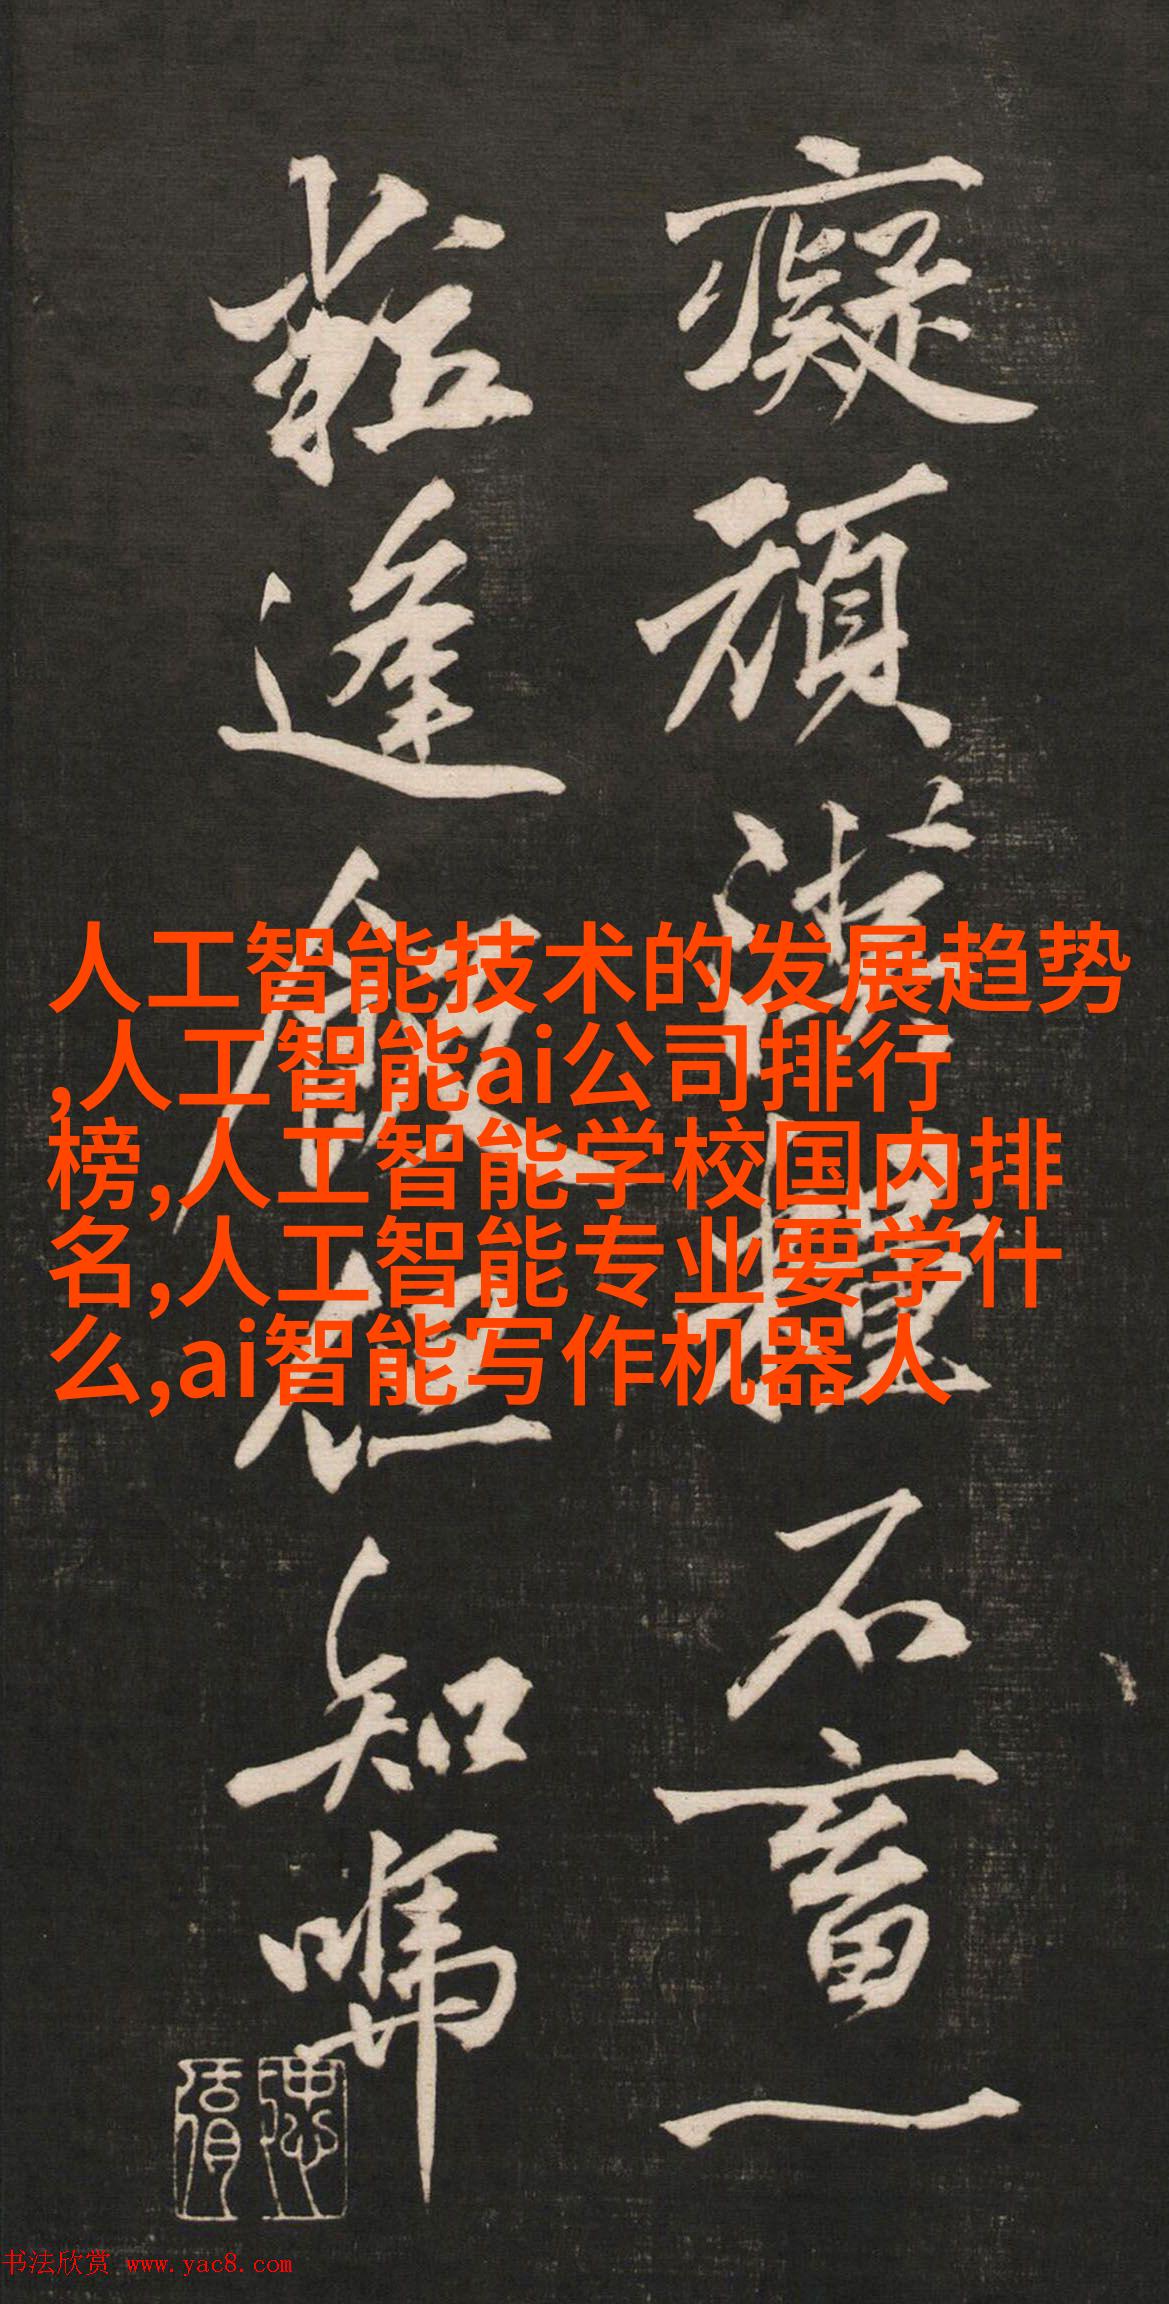 癡頑種不畜一
粒逢飯但知
人工智能技术的发展趋势
,人工智能ai公司排行
榜,人工智能学校国内排
名,人工智能专业要学什
么,ai智能写作机器人
书法欣赏 www.yac8.com